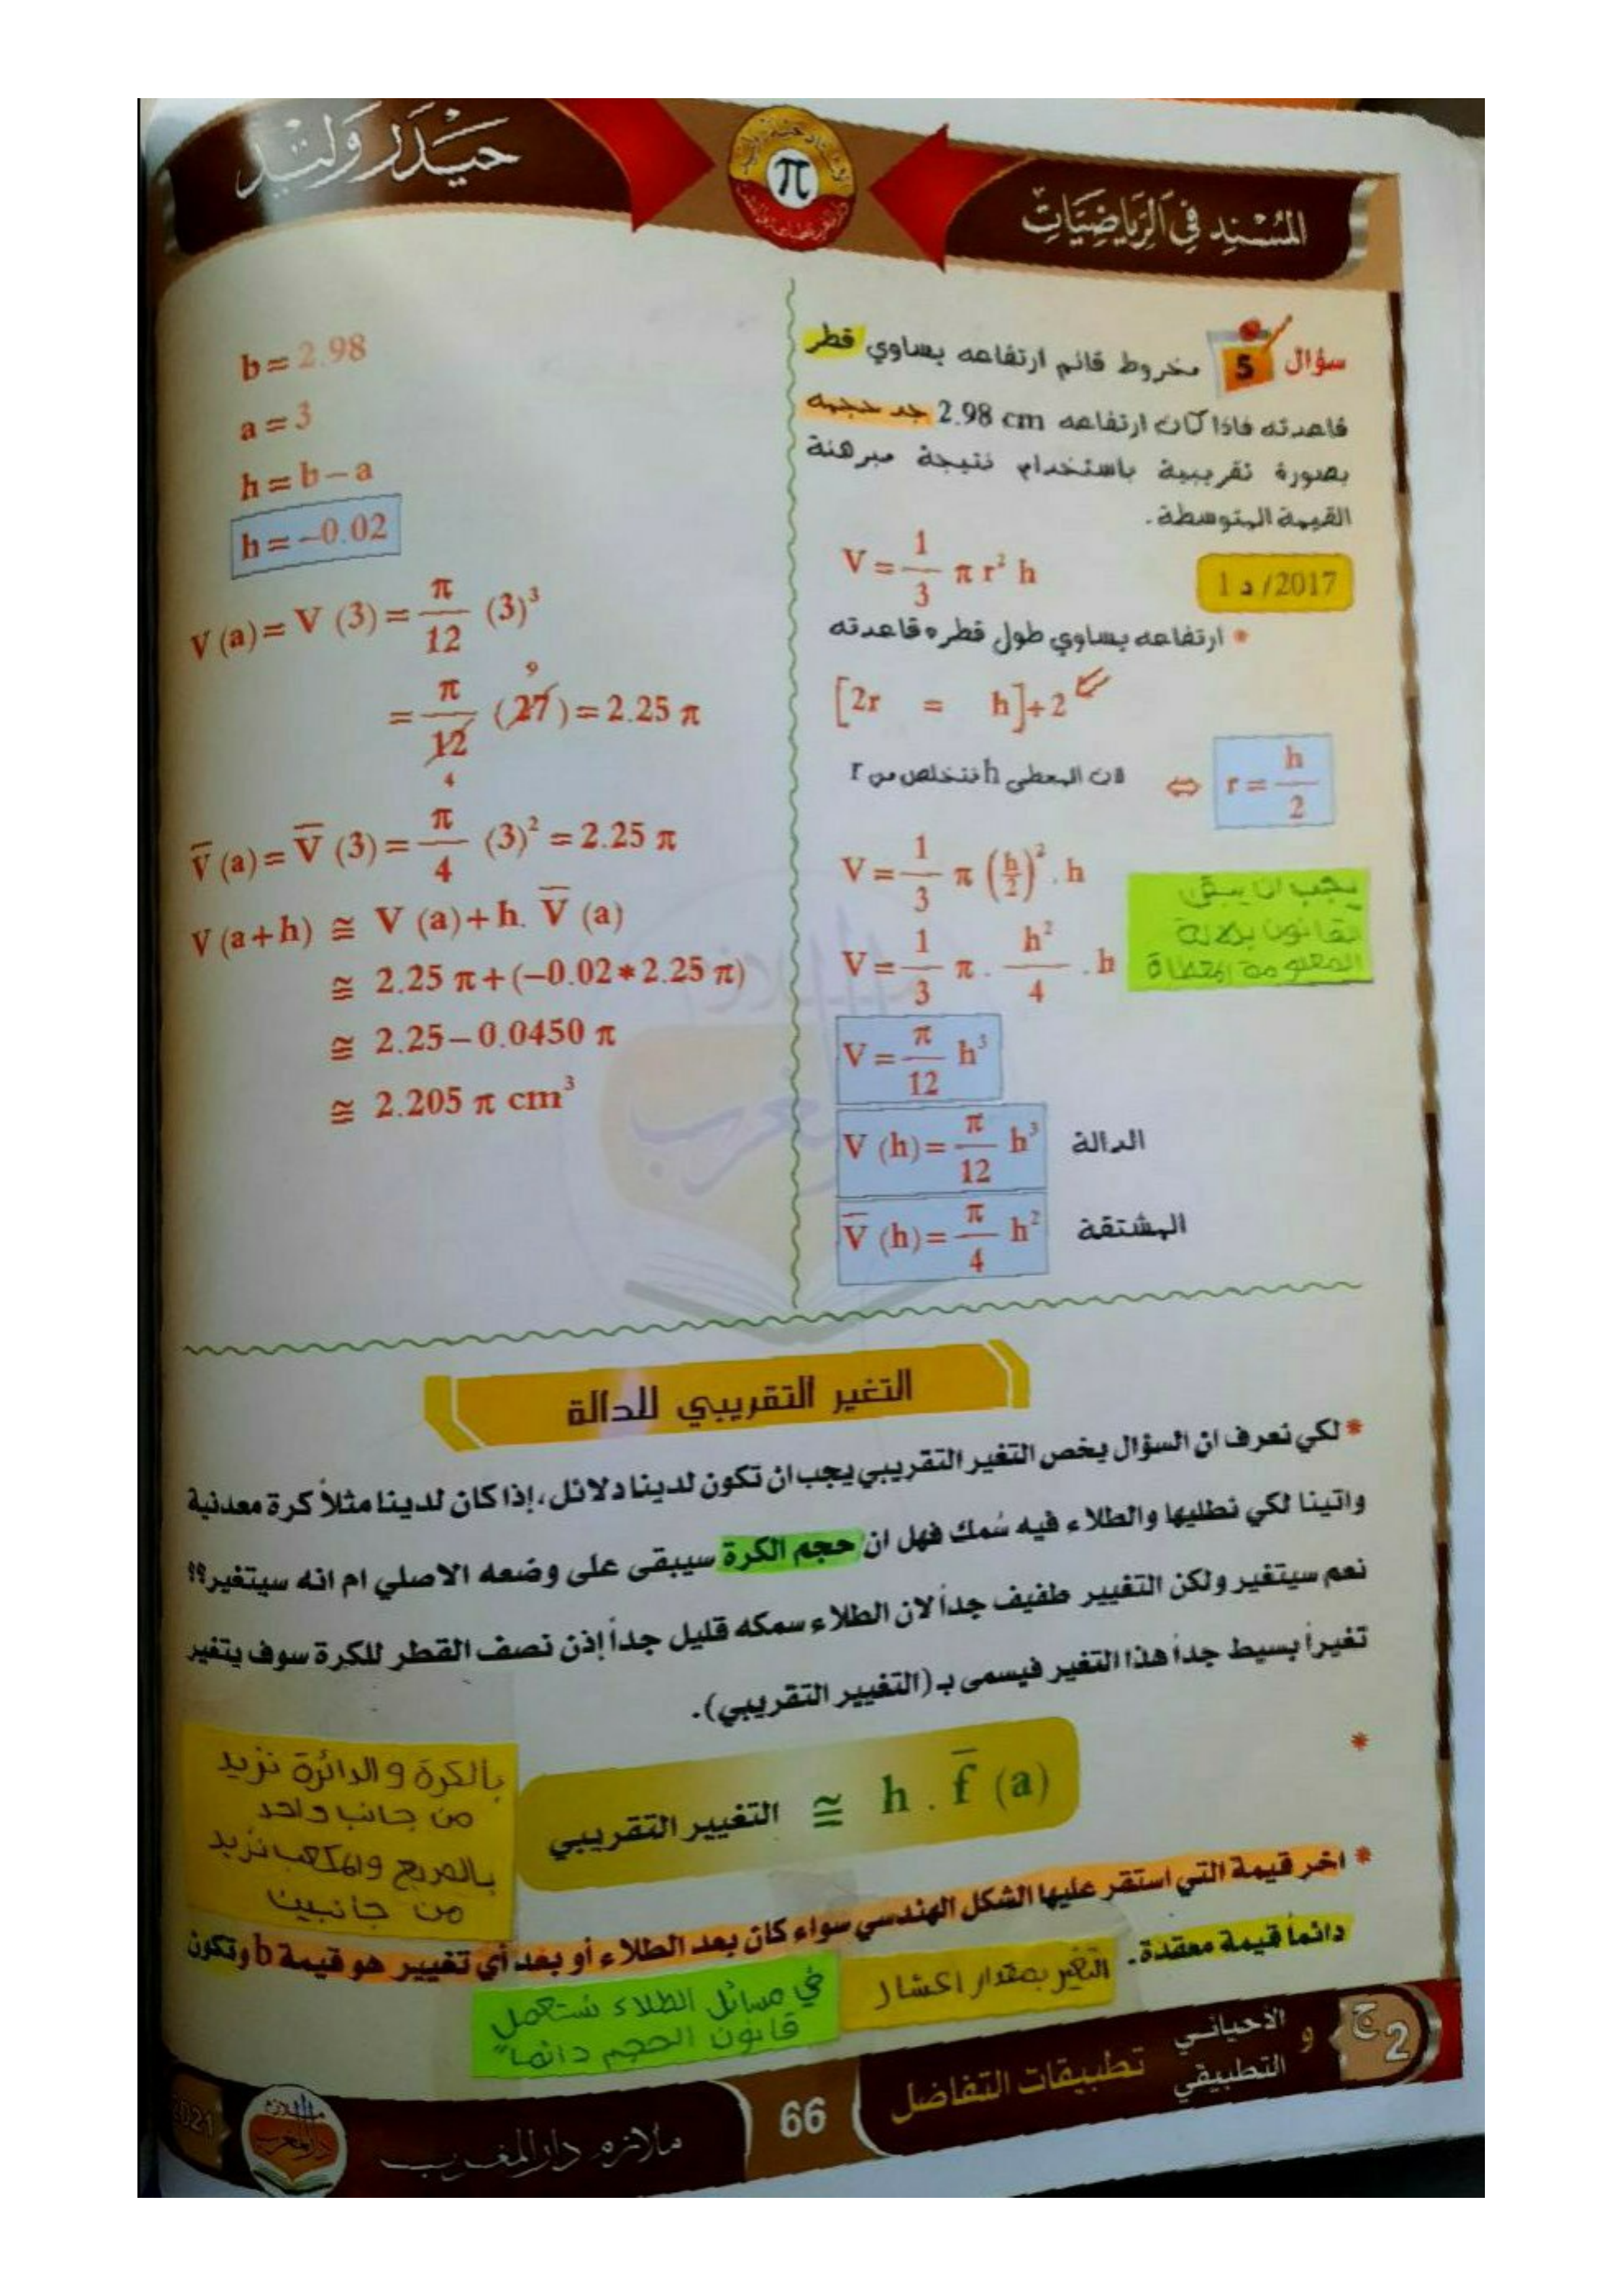 المُسْنِد فِي الرِّيَاضِيَّاتِ
π
حَيْدَر وَليْد
سؤال 5 مخروط قائم ارتفاعه يساوي قطر
قاعدته فاذا كان ارتفاعه 2.98 cm جد حجمه
بصورة تقريبية باستخدام نتيجة مبرهنة
القيمة المتوسطة.
2017/ د 1
V = 1/3 π r² h
* ارتفاعه يساوي طول قطره قاعدته
[2r = h]÷2
لان المعطى h نتخلص من r ⇔ r = h/2
V = 1/3 π (h/2)² . h
V = 1/3 π . h²/4 . h
يجب ان يبقى
القانون بدلالة
المعلومة المعطاة
V = π/12 h³
V (h) = π/12 h³ الدالة
V̅ (h) = π/4 h² المشتقة
b = 2.98
a = 3
h = b − a
h = −0.02
V (a) = V (3) = π/12 (3)³
= π/12 (27) = 2.25 π
9
4
V̅ (a) = V̅ (3) = π/4 (3)² = 2.25 π
V (a+h) ≅ V (a) + h. V̅ (a)
≅ 2.25 π + (−0.02*2.25 π)
≅ 2.25 − 0.0450 π
≅ 2.205 π cm³
التغير التقريبي للدالة
* لكي نعرف ان السؤال يخص التغير التقريبي يجب ان تكون لدينا دلائل، إذا كان لدينا مثلاً كرة معدنية
واتينا لكي نطليها والطلاء فيه سُمك فهل ان حجم الكرة سيبقى على وضعه الاصلي ام انه سيتغير؟؟
نعم سيتغير ولكن التغيير طفيف جداً لان الطلاء سمكه قليل جداً إذن نصف القطر للكرة سوف يتغير
تغيراً بسيط جداً هذا التغير فيسمى بـ (التغيير التقريبي).
* التغيير التقريبي ≅ h . f̅ (a)
بالكرة والدائرة نزيد
من جانب واحد
بالمربع والمكعب نزيد
من جانبين
* اخر قيمة التي استقر عليها الشكل الهندسي سواء كان بعد الطلاء أو بعد أي تغيير هو قيمة b وتكون
دائماً قيمة معقدة.
التغير بمقدار اعشار
في مسائل الطلاء نستعمل
قانون الحجم دائماً"
ج2
الأحيائي
و
التطبيقي
تطبيقات التفاضل
66
ملازم دار المغرب
ملازم
دار المغرب
2021